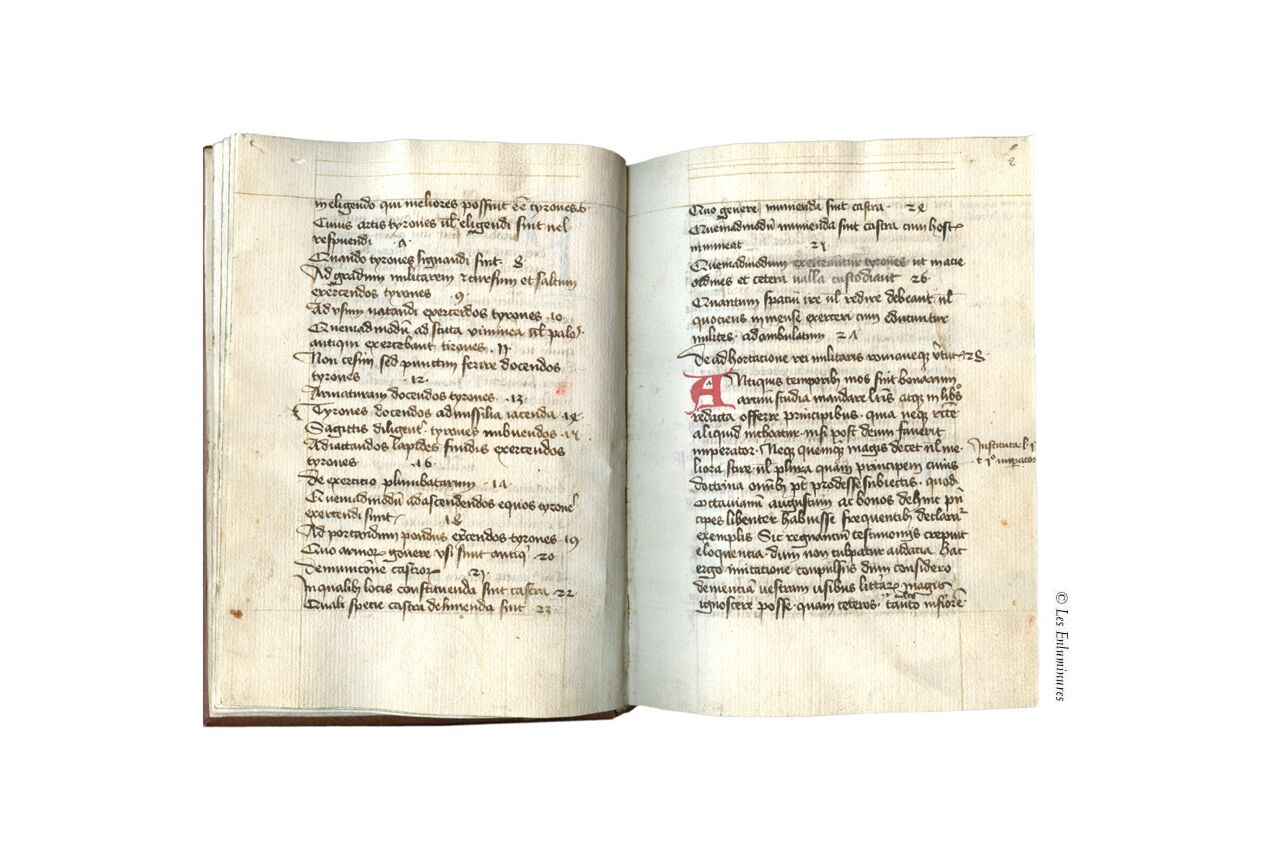 in eligendo qui meliores possint ee tyrones 6
Cuius artis tyrones ul eligendi sint uel
respuendi . 7 .
Quando tyrones signandi sint . 8
Ad gradum militarem et cursum et saltum
exercendos tyrones . 9 .
Ad usum natandi exercendos tyrones . 10 .
Quemadmodu ad scuta viminea ul palos
antiqui exercebant tirones . 11 .
Non cesim sed punctim ferire docendos
tyrones . 12 .
Armaturam docendos tyrones . 13 .
Tyrones docendos ad missilia iacenda . 14 .
Sagittis diligent tyrones imbuendos . 15
Ad iactandos lapides fundis exercendos
tyrones . 16 .
De exercitio plumbatarum . 17 .
Quemadmodu ad ascendendos equos tyrones
exercendi sint . 18
Ad portandum pondus exercendos tyrones . 19
Quo armor genere usi sunt antiqi . 20
De municone castror . 21 .
In qualib locis constituenda sint castra . 22
Quali specie castra delinienda sint . 23 .
2
Quo genere munienda sint castra . 24
Quemadmodu munienda sint castra cum hostis
immineat 25
Quemadmodum exerceantur tyrones ut in acie
ordines et cetera ualla custodiant 26 .
Quantum spatiu ire ul redire debeant ul
quociens in mense exerceri cum educuntur
milites ad ambulatum 27
De adhortatione rei militaris romaneq 28 .
Antiquis temporib mos fuit bonarum
artium studia mandare lris atq in libos
redacta offerre principibus . quia neq rite
aliquid inchoatur . nisi post deum fauerit
imperator . Neq quemq magis decet ul me-
liora scire . ul plura quam principem cuius
doctrina omib pt prodesse subiectis . quod
octavianu augustum ac bonos dehinc prin
cipes libenter habuisse frequentib declarat
exemplis Sic regnantiu testimonijs crepuit
eloquentia . dum non culpatur audatia hac
ergo imitatione compulsus dum considero
clementiam vestram ausibus littar magis
ignoscere posse . quam ceteros . tanto inferiore
© Les Enluminures